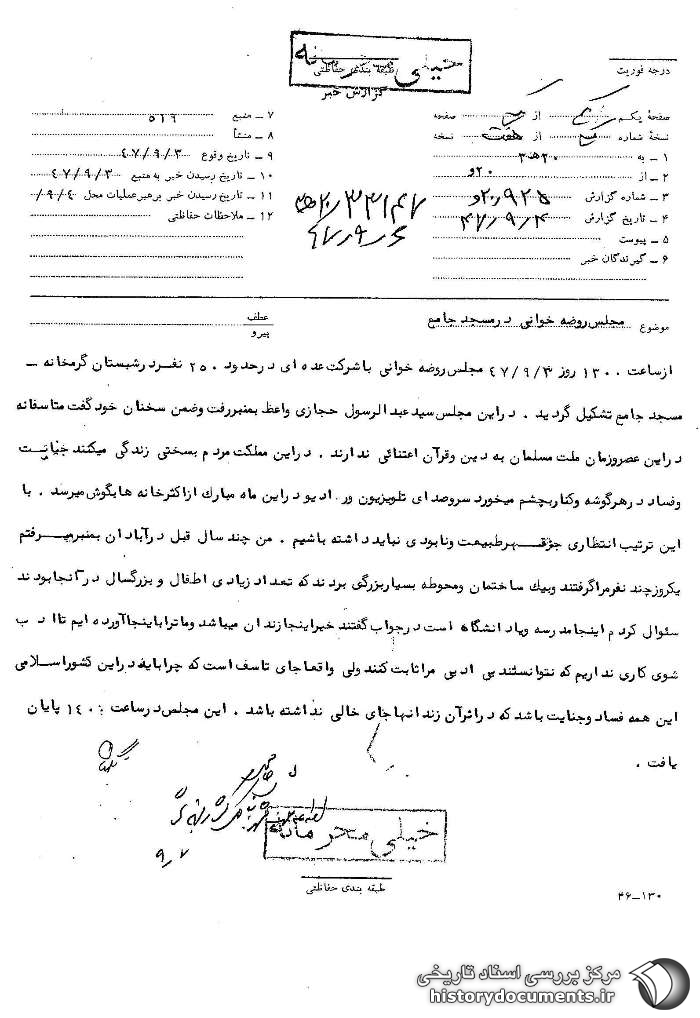 خیلی محرمانه
طبقه بندی حفاظتی
گزارش خبر
درجه فوریت
صفحهٔ یکم از صفحه
نسخهٔ شماره از هفت نسخه
۱ ـ به ۲۰ هـ ۳
۲ ـ از ۲۰ و
۳ ـ شماره گزارش ۲۰٫۹۲۵ و
۴ ـ تاریخ گزارش ۴۷/۹/۴
۵ ـ پیوست
۶ ـ گیرندگان خبر
۷ ـ منبع ۵۱۹
۸ ـ منشأ
۹ ـ تاریخ وقوع ۴۷/۹/۳
۱۰ ـ تاریخ رسیدن خبر به منبع ۴۷/۹/۳
۱۱ ـ تاریخ رسیدن خبر برهبر عملیات محل ۹/۴/
۱۲ ـ ملاحظات حفاظتی
موضوع مجلس روضه خوانی در مسجد جامع
عطف
پیرو
ازساعت ۱۳۰۰ روز ۴۷/۹/۳ مجلس روضه خوانی با شرکت عده ای در حدود ۲۵۰ نفر در شبستان گرمخانه ـ
مسجد جامع تشکیل گردید . در این مجلس سید عبدالرسول حجازی واعظ بمنبر رفت وضمن سخنان خود گفت متاسفانه
در این عصر و زمان ملت مسلمان به دین وقرآن اعتنائی ندارند . در این مملکت مردم بسختی زندگی میکنند جنایت
وفساد در هرگوشه وکنار بچشم میخورد سروصدای تلویزیون ورادیو در این ماه مبارک از اکثر خانه ها بگوش میرسد . با
این ترتیب انتظاری جز قهر طبیعت ونابودی نباید داشته باشیم . من چند سال قبل در آبادان بمنبر میرفتم
یکروز چند نفر مرا گرفتند وبیک ساختمان ومحوطه بسیار بزرگی بردند که تعداد زیادی اطفال و بزرگسال در آنجا بودند
سئوال کردم اینجا مدرسه ویا دانشگاه است در جواب گفتند خیر اینجا زندان میباشد وما ترا باینجا آورده ایم تا ادب
شوی کاری نداریم که نتوانستند بی ادبی مرا ثابت کنند ولی واقعا جای تاسف است که چرا باید در این کشور اسلامی
این همه فساد وجنایت باشد که در اثر آن زندانها جای خالی نداشته باشد . این مجلس در ساعت ۱۴۰۰ پایان
یافت .
۹٫۷
خیلی محرمانه
طبقه بندی حفاظتی
۴۶ــ۱۳۰
مرکز بررسی اسناد تاریخی
historydocuments.ir